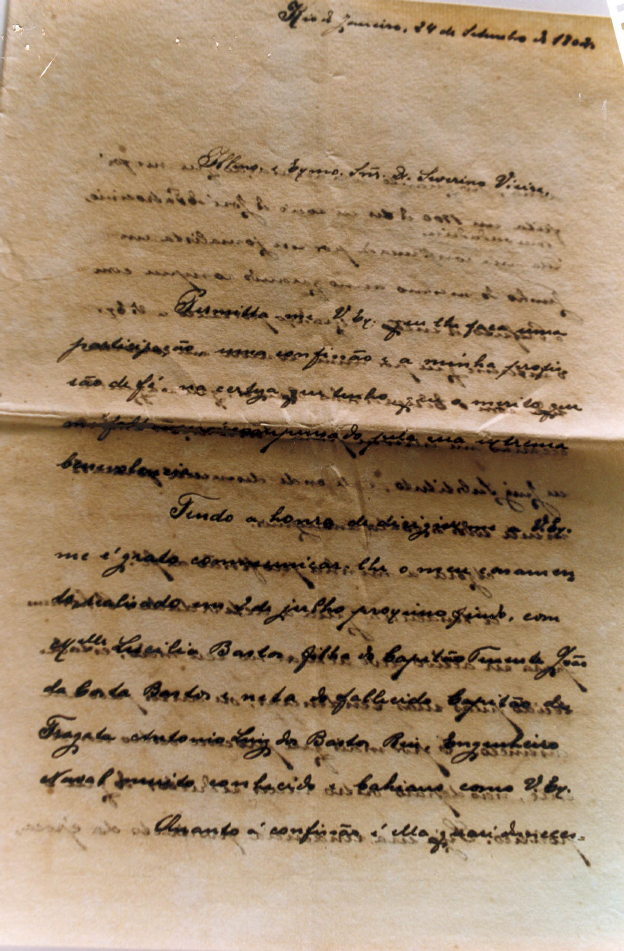 Rio de Janeiro, 24 de Setembro de
Illmo. e Exmo. Snr. Dr. Severino Vieira,
Permitta me V. Ex. que lhe faça uma
participação, uma confissão e a minha profis
são de fé, na certeza que tenho, que o merito que
pela sua extrema
benevolencia.
Tendo a honra de dirigir-me a V. Ex.
me é grato communicar-lhe o meu casamen
to, realisado em 2 de julho proximo findo, com
Melle Lucilia Bastos, filha do Capitão Tenente João
da Costa Bastos e neta do fallecido Capitão de
Fragata Antonio Luiz de Bastos Reis, Engenheiro
Naval muito conhecido e bahiano como V. Ex.
Quanto á confissão é ella quasi desneces-